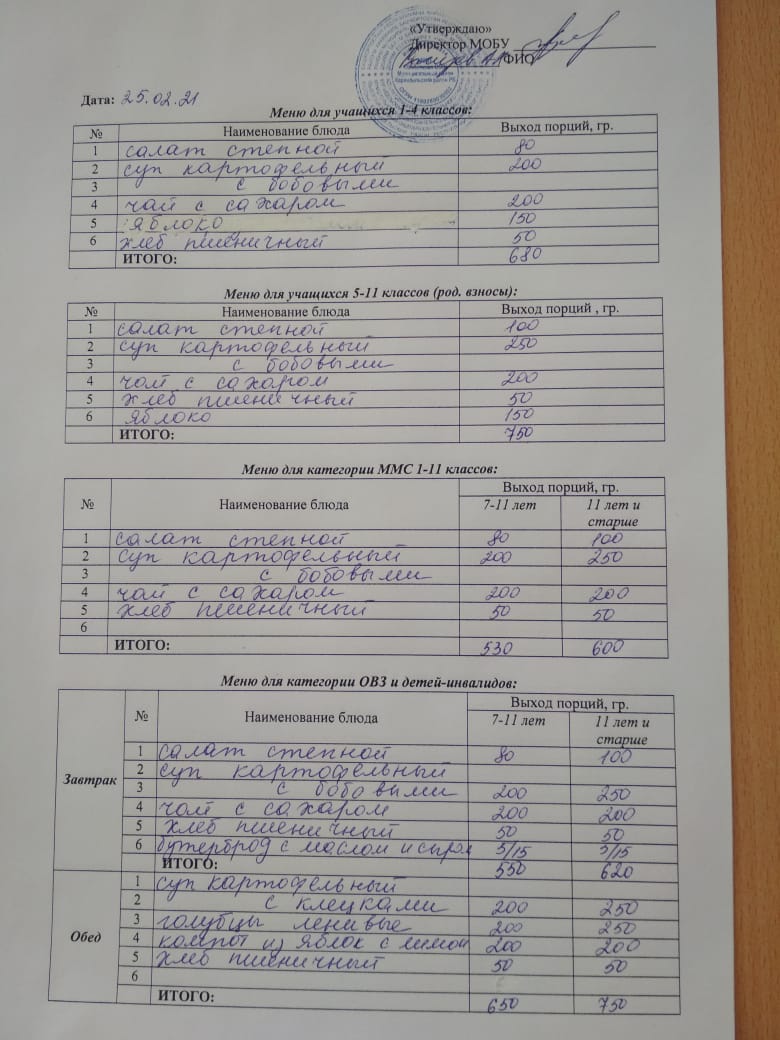 «Утверждаю»
Директор МОБУ
ФИО
Дата: 25.02.21
Меню для учащихся 1-4 классов:
№ Наименование блюда Выход порций, гр.
1 салат степной 80
2 суп картофельный 200
3 с бобовыми
4 чай с сахаром 200
5 яблоко 150
6 хлеб пшеничный 50
ИТОГО: 680
Меню для учащихся 5-11 классов (род. взносы):
№ Наименование блюда Выход порций , гр.
1 салат степной 100
2 суп картофельный 250
3 с бобовыми
4 чай с сахаром 200
5 хлеб пшеничный 50
6 яблоко 150
ИТОГО: 750
Меню для категории ММС 1-11 классов:
№ Наименование блюда Выход порций, гр.
7-11 лет 11 лет и
старше
1 салат степной 80 100
2 суп картофельный 200 250
3 с бобовыми
4 чай с сахаром 200 200
5 хлеб пшеничный 50 50
6
ИТОГО: 530 600
Меню для категории ОВЗ и детей-инвалидов:
№ Наименование блюда Выход порций, гр.
7-11 лет 11 лет и
старше
Завтрак
1 салат степной 80 100
2 суп картофельный
3 с бобовыми 200 250
4 чай с сахаром 200 200
5 хлеб пшеничный 50 50
6 бутерброд с маслом и сыром 5/15 5/15
ИТОГО: 550 620
Обед
1 суп картофельный
2 с клецками 200 250
3 голубцы ленивые 200 250
4 компот из яблок с лимон 200 200
5 хлеб пшеничный 50 50
6
ИТОГО: 650 750